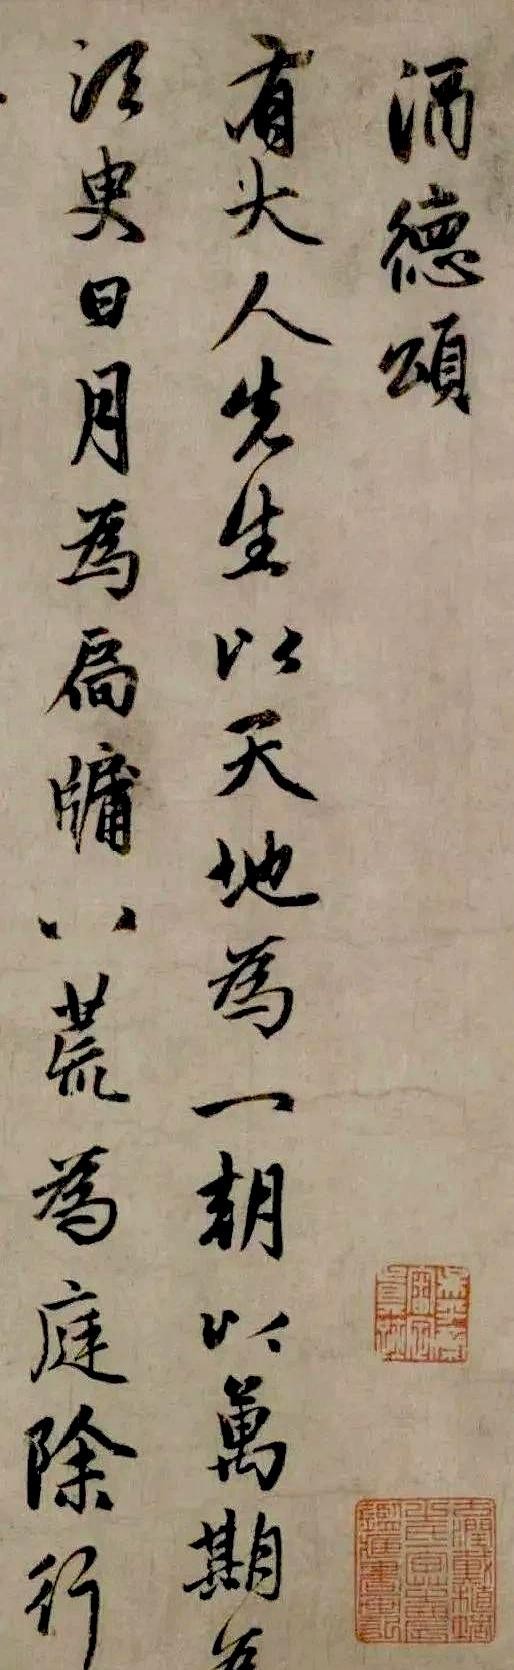 酒德頌
有大人先生以天地為一朝以萬期為
須臾日月為扃牖八荒為庭除行